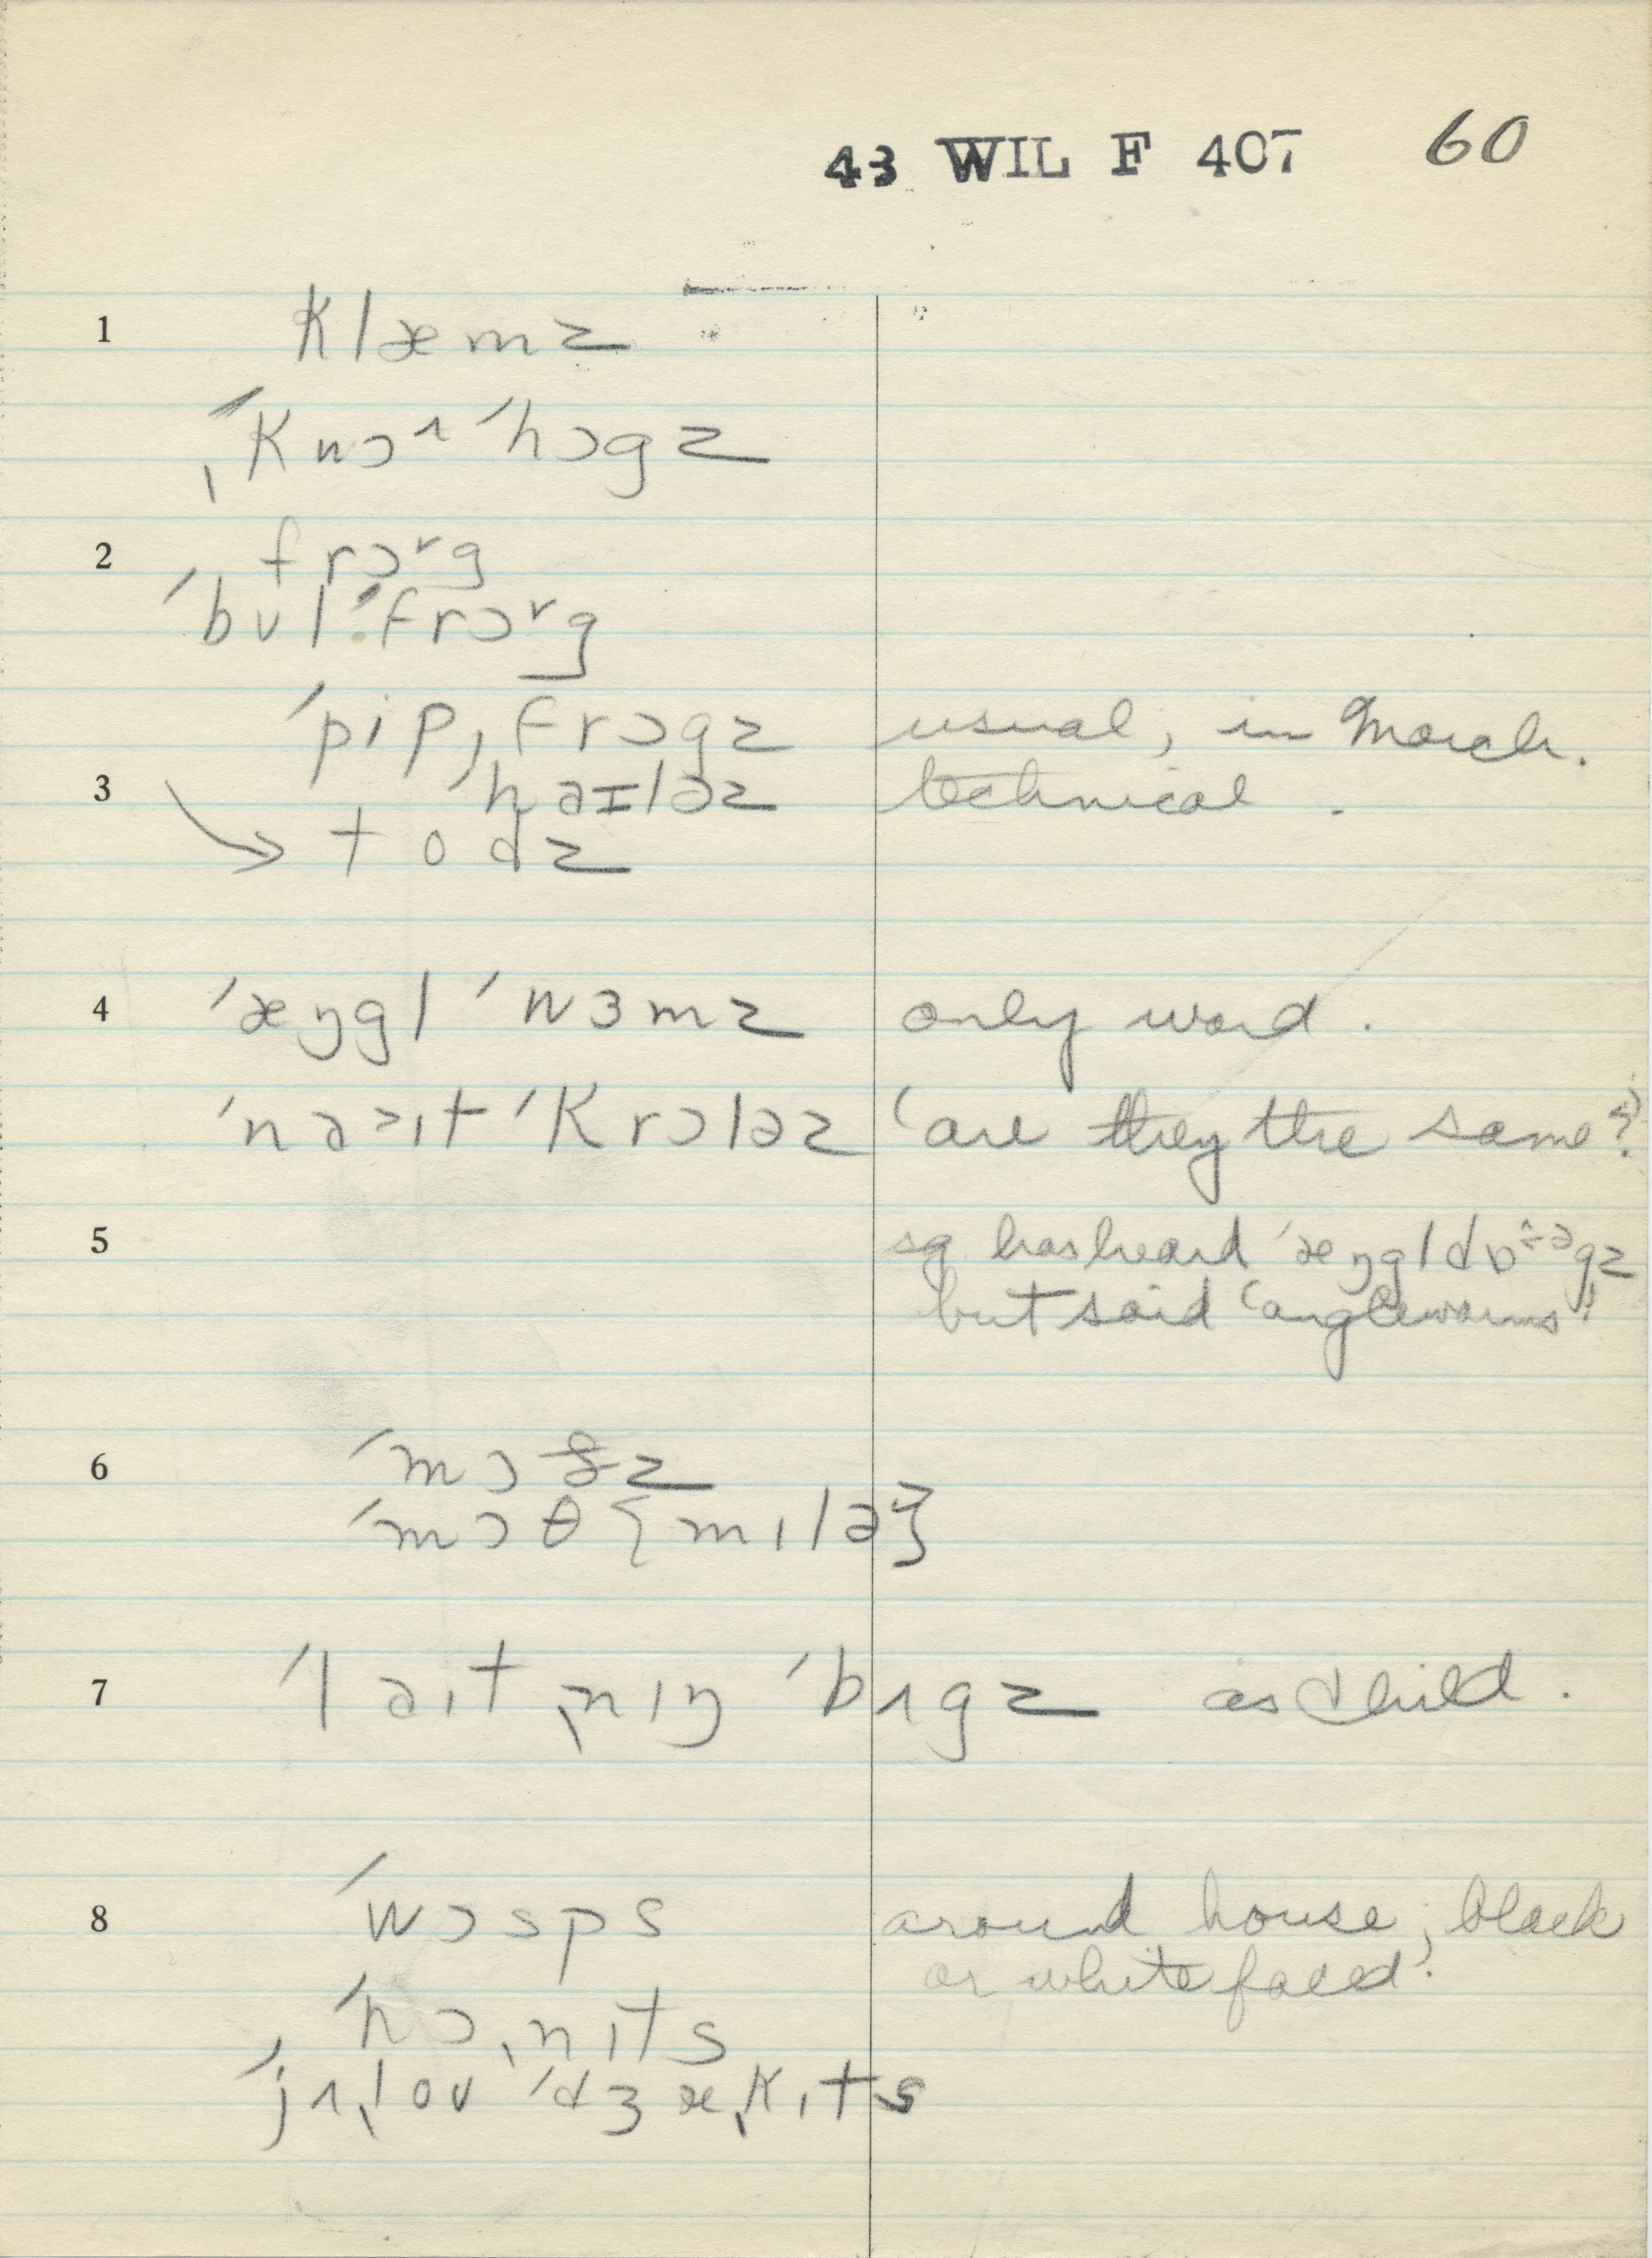 43 WIL F 407 60
1 klæmz
ˌˈkwɔʌˈhɔgz
2 frɔ˅g
ˈbʊlˈfrɔ˅g
ˈpipˌfrɔgz usual, in March.
3 ˈhaɪləz technical.
→ todz
4 ˈæŋglˈwɜmz only word.
ˈnaɪtˈkrɔləz 'are they the same?'
5 sq has heard ˈæŋgldɒgz
but said 'angleworms'
6 ˈmɔðz
ˈmɔθ {mɪlə}
7 ˈlaɪtˌnɪŋˈbʌgz as child.
8 ˈwɔsps around house; black
or white faced.
ˈhɔˌnɪts
ˈjʌˌloʊˈdʒæˌkɪts